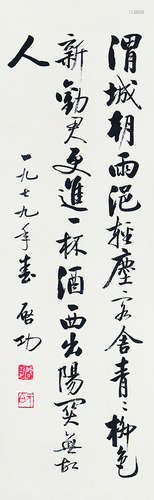 渭城朝雨浥輕塵客舍青〻柳色
新勸君更進一杯酒西出陽關無故
人
一九七九年春 啟功